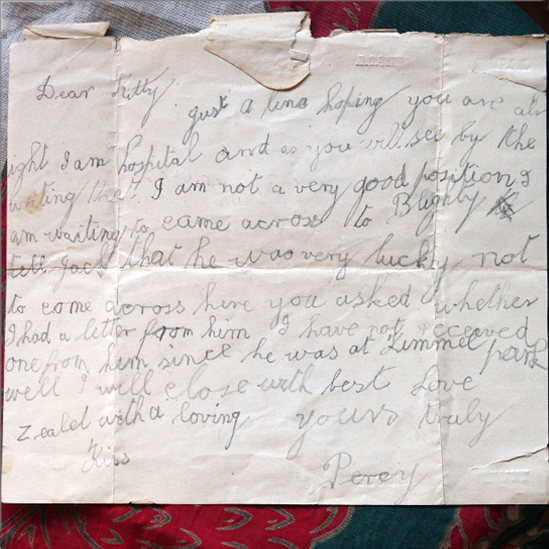 Dear Kitty
gust a line hoping you are alr
ight I am hospital and as you will see by the
writing that I am not a very good position &
am waiting to came across to Blighty
tell Jack that he was very lucky not
to come across here you asked whether
I had a letter from him I have not receaved
one from him since he was at Limmel park
well I will close with best Love
Zealed with a loving yours truly
Kiss
Percy